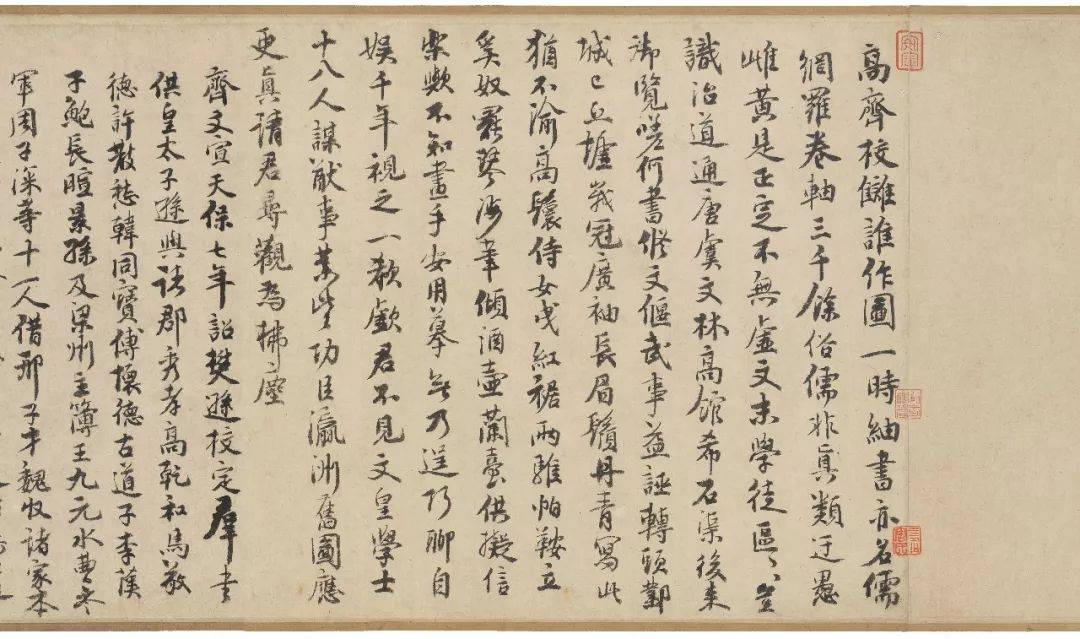 高齊校讎誰作圖一時紬書亦名儒
網羅卷軸三千餘俗儒非真類迂愚
雌黃是正定不無虛文末學徒區〻豈
識治道通唐虞文林高館希石渠後來
御覽嗟何書修文偃武事益誣轉頭鄴
城已丘墟峩冠廣袖長眉鬚丹青寫此
猶不渝高鬟侍女曳紅裾兩騅帕鞍立
奚奴罷琴涉筆傾酒壺蘭臺供擬信
樂歟不知畫手安用摹無乃逞巧聊自
娛千年視之一欷歔君不見文皇學士
十八人謀猷事業皆功臣瀛洲舊圖應
更真請君尋觀為拂塵
齊文宣天保七年詔樊遜校定羣書
供皇太子遜與諸郡秀孝高乾和馬敬
德許散愁韓同寶傅懷德古道子李漢
子鮑長暄景孫及梁州主簿王九元水曹參
軍周子深等十一人借邢子才魏收諸家本